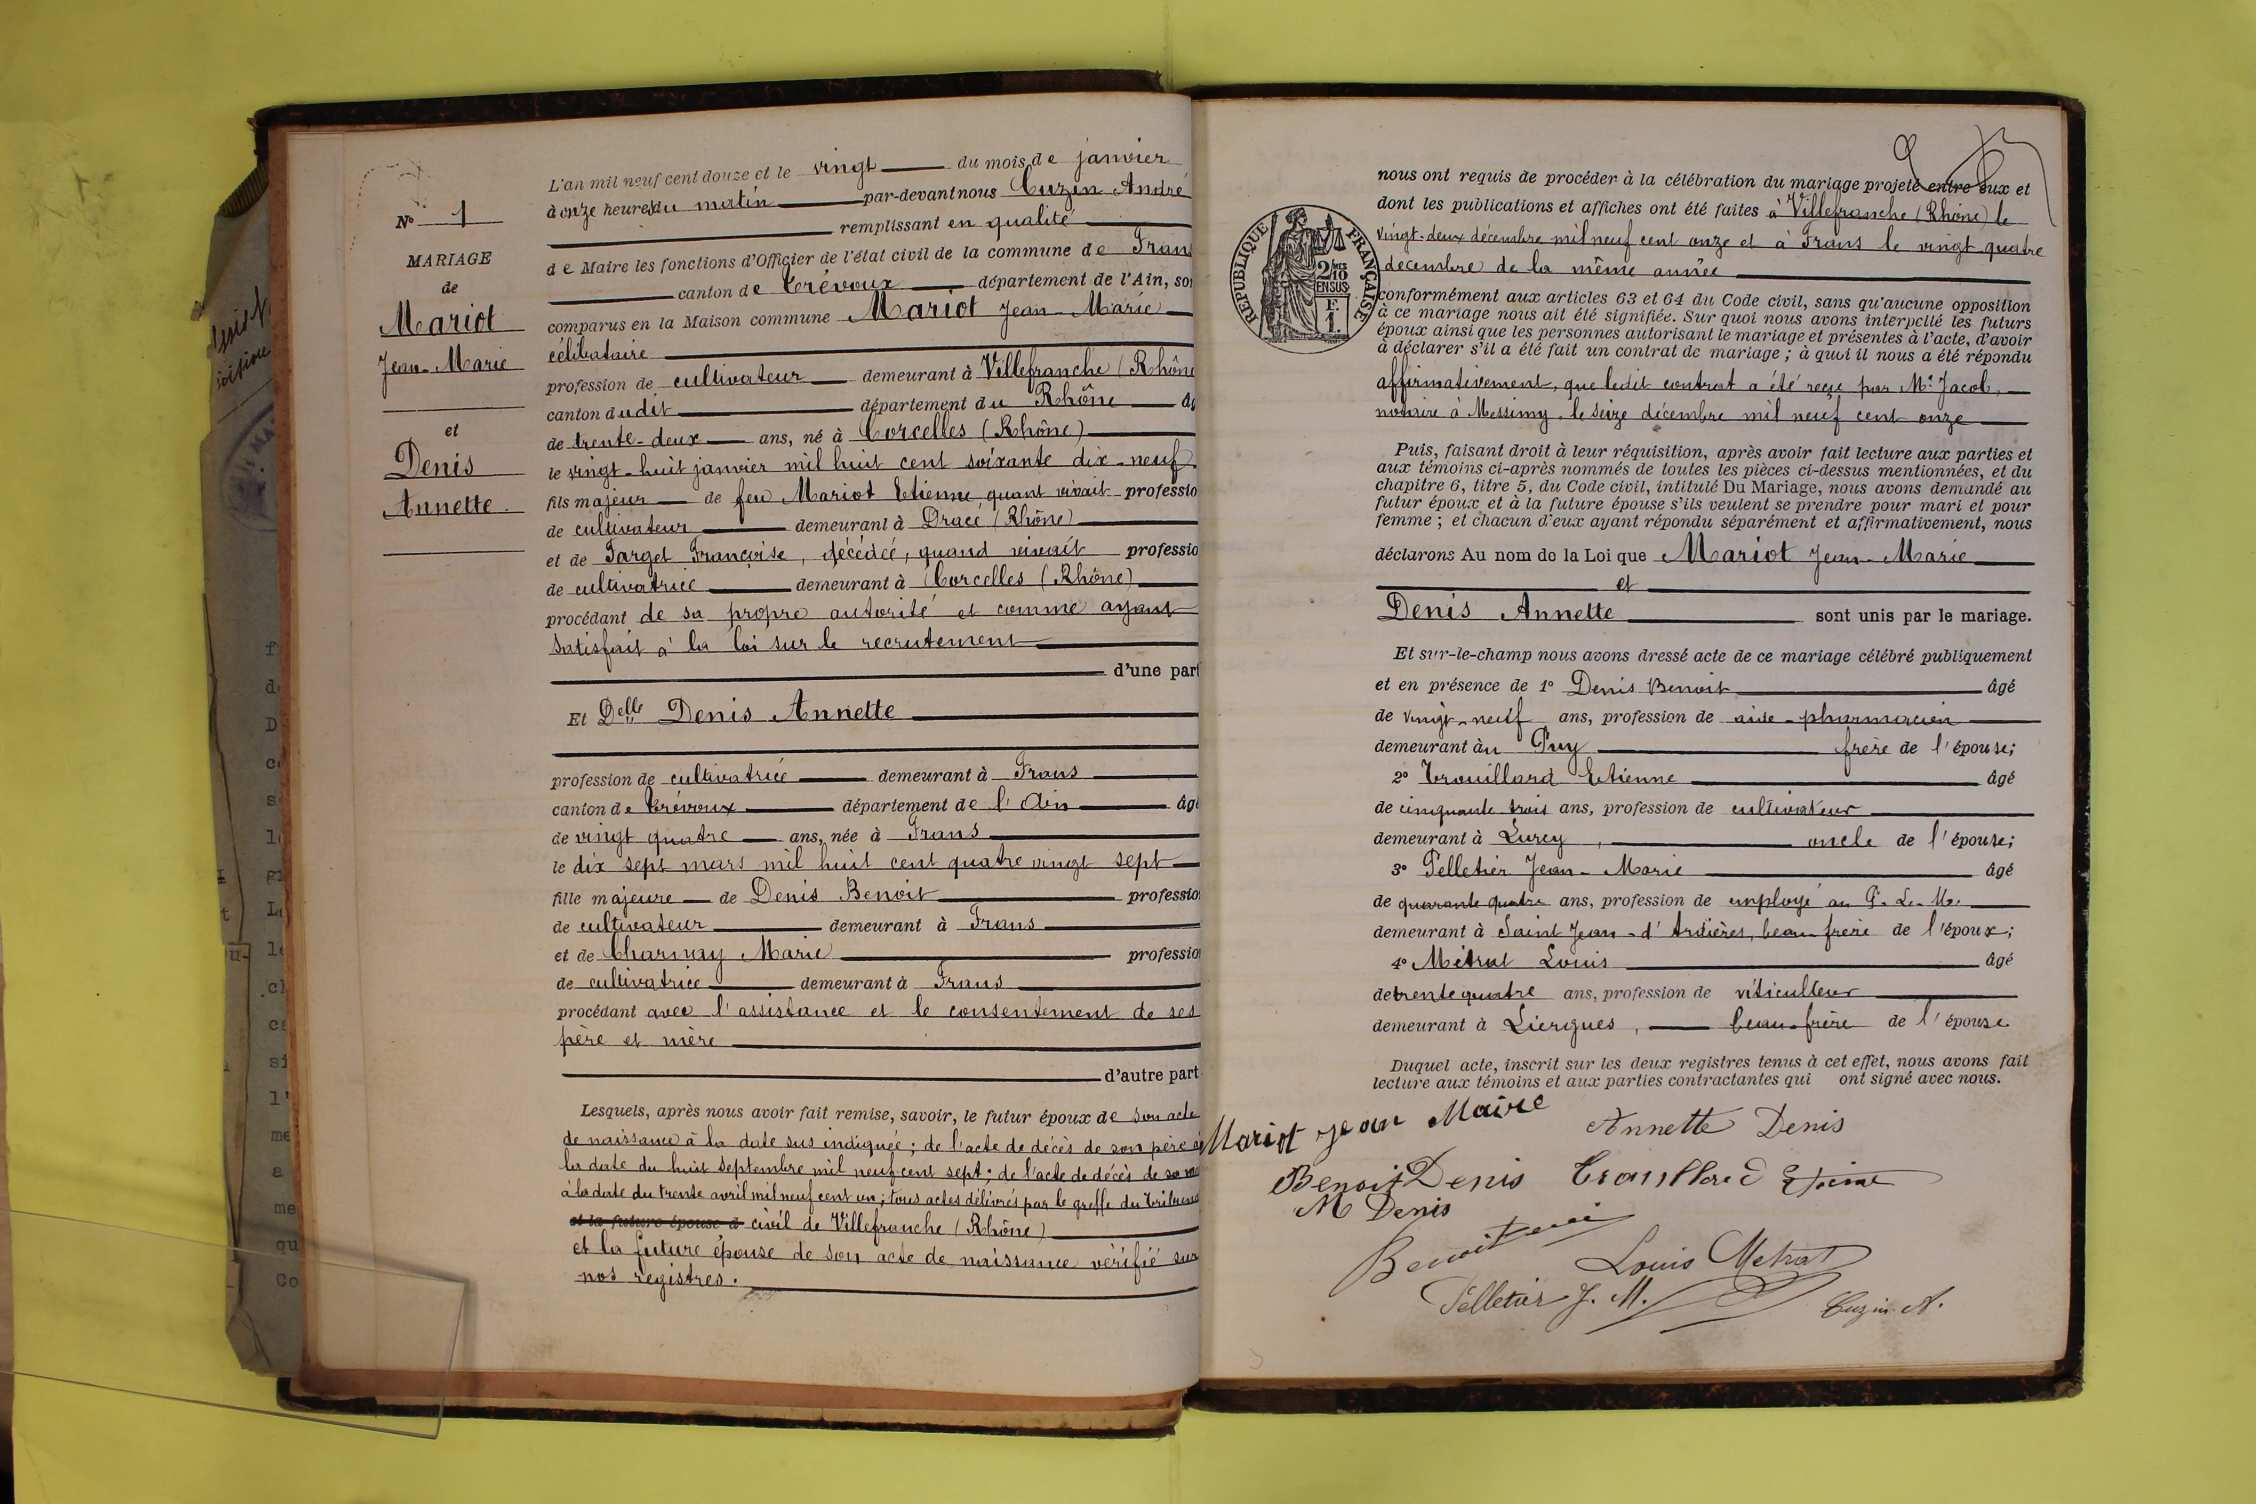 N° 1
MARIAGE
de
Mariot
Jean-Marie
et
Denis
Annette
L'an mil neuf cent douze et le vingt du mois de janvier
à onze heures du matin par-devant nous Cuzin André
remplissant en qualité
de Maire les fonctions d'Officier de l'état civil de la commune de Frans
canton de Trévoux département de l'Ain, son
comparus en la Maison commune Mariot Jean-Marie
célibataire
profession de cultivateur demeurant à Villefranche (Rhône
canton dudit département du Rhône âg
de trente-deux ans, né à Corcelles (Rhône)
le vingt-huit janvier mil huit cent soixante dix-neuf
fils majeur de feu Mariot Etienne quant vivait professio
de cultivateur demeurant à Dracé (Rhône)
et de Target Françoise, décédée, quand vivait professio
de cultivatrice demeurant à Corcelles (Rhône)
procédant de sa propre autorité et comme ayant
satisfait à la loi sur le recrutement
d'une part
Et Delle Denis Annette
profession de cultivatrice demeurant à Frans
canton de Trévoux département de l'Ain âgé
de vingt quatre ans, née à Frans
le dix sept mars mil huit cent quatre vingt sept
fille majeure de Denis Benoit profession
de cultivateur demeurant à Frans
et de Charnay Marie profession
de cultivatrice demeurant à Frans
procédant avec l'assistance et le consentement de ses
père et mère
d'autre part
Lesquels, après nous avoir fait remise, savoir, le futur époux de son acte
de naissance à la date sus indiquée; de l'acte de décès de son père à
la date du huit septembre mil neuf cent sept; de l'acte de décès de sa
à la date du trente avril mil neuf cent un; tous actes délivrés par le greffe du Tribunal
et la future épouse d civil de Villefranche (Rhône)
et la future épouse de son acte de naissance vérifié sur
nos registres.
nous ont requis de procéder à la célébration du mariage projeté entre eux et
dont les publications et affiches ont été faites à Villefranche (Rhône) le
vingt-deux décembre mil neuf cent onze et à Frans le vingt quatre
décembre de la même année
RÉPUBLIQUE FRANÇAISE
2/10
EN SUS
F.
1.
conformément aux articles 63 et 64 du Code civil, sans qu'aucune opposition
à ce mariage nous ait été signifiée. Sur quoi nous avons interpellé les futurs
époux ainsi que les personnes autorisant le mariage et présentes à l'acte, d'avoir
à déclarer s'il a été fait un contrat de mariage; à quoi il nous a été répondu
affirmativement, que ledit contrat a été reçu par Me Jacob,
notaire à Messimy, le seize décembre mil neuf cent onze
Puis, faisant droit à leur réquisition, après avoir fait lecture aux parties et
aux témoins ci-après nommés de toutes les pièces ci-dessus mentionnées, et du
chapitre 6, titre 5, du Code civil, intitulé Du Mariage, nous avons demandé au
futur époux et à la future épouse s'ils veulent se prendre pour mari et pour
femme; et chacun d'eux ayant répondu séparément et affirmativement, nous
déclarons Au nom de la Loi que Mariot Jean-Marie
et
Denis Annette sont unis par le mariage.
Et sur-le-champ nous avons dressé acte de ce mariage célébré publiquement
et en présence de 1° Denis Benoit âgé
de vingt-neuf ans, profession de aide-pharmacien
demeurant au Puy frère de l'épouse;
2° Trouillard Etienne âgé
de cinquante trois ans, profession de cultivateur
demeurant à Lurcy, oncle de l'épouse;
3° Pelletier Jean-Marie âgé
de quarante quatre ans, profession de employé au P. L. M.
demeurant à Saint Jean-d'Ardières, beau frère de l'époux;
4° Métrat Louis âgé
de trente quatre ans, profession de viticulteur
demeurant à Liergues, beau-frère de l'épouse
Duquel acte, inscrit sur les deux registres tenus à cet effet, nous avons fait
lecture aux témoins et aux parties contractantes qui ont signé avec nous.
Mariot Jean Maire
Annette Denis
Benoit Denis
M Denis
Louis Metrat
Pelletier J. M.
Cuzin A.